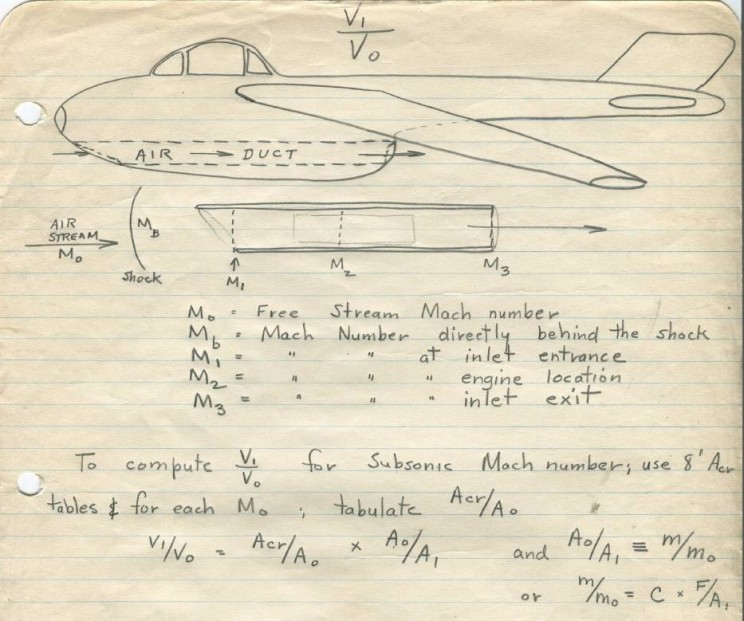 V₁/V₀
AIR → DUCT
AIR STREAM
M₀
M_B
Shock
M₁
M₂
M₃
M₀ = Free Stream Mach number
M_b = Mach Number directly behind the shock
M₁ = " " at inlet entrance
M₂ = " " " engine location
M₃ = " " " inlet exit
To compute V₁/V₀ for Subsonic Mach number; use 8' Acr
tables & for each M₀ ; tabulate Acr/A₀
V₁/V₀ = Acr/A₀ × A₀/A₁ and A₀/A₁ ≡ m/m₀
or m/m₀ = C × F/A₁